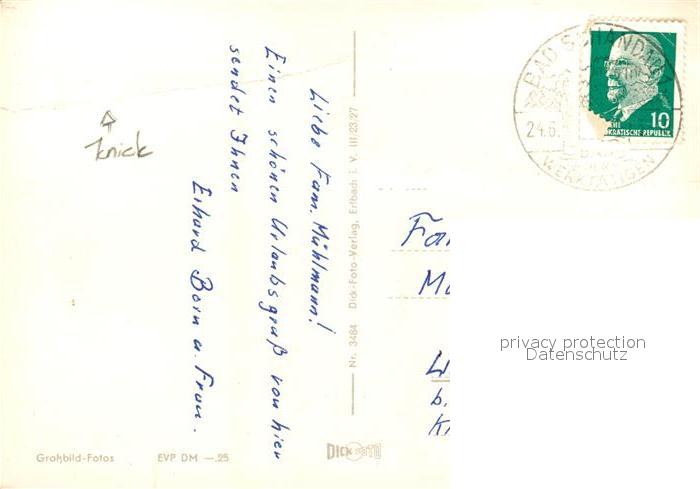 Liebe Fam. Mühlmann!
Einen schönen Urlaubsgruß von hier
sendet Ihnen
Erhard Born u. Frau.
Knick
Großbild-Fotos
EVP DM —.25
Nr. 3484 Dick-Foto-Verlag, Erlbach i. V. III/23/27
DICK FOTO
BAD SCHANDAU
24.6.
BAD DER
WERKTÄTIGEN
10
DEMOKRATISCHE REPUBLIK
b.
privacy protection
Datenschutz